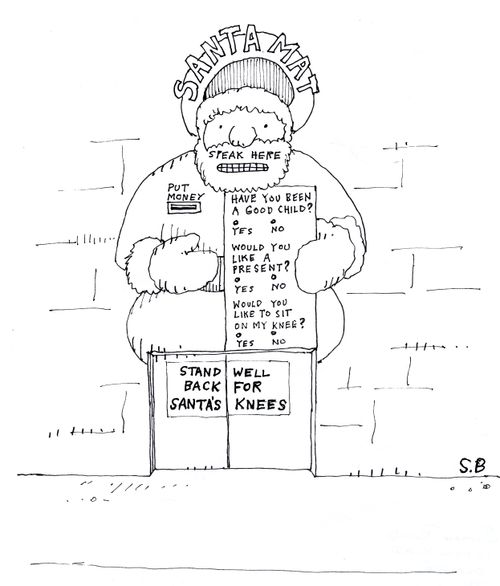 SANTA MAT
SPEAK HERE
PUT
MONEY
HAVE YOU BEEN
A GOOD CHILD?
YES NO
WOULD YOU
LIKE A
PRESENT?
YES NO
WOULD YOU
LIKE TO SIT
ON MY KNEE?
YES NO
STAND WELL
BACK FOR
SANTA'S KNEES
S.B